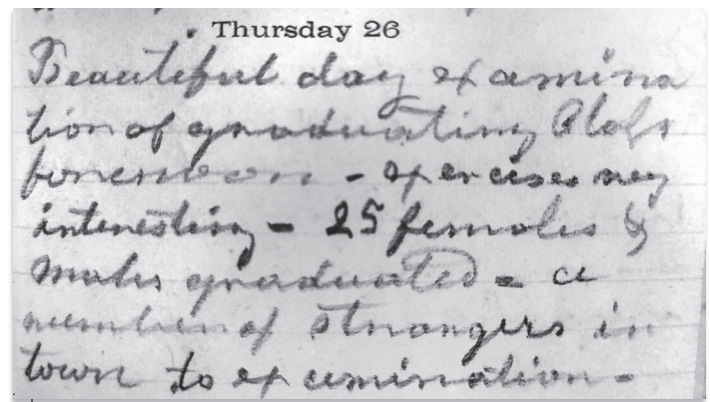 Thursday 26
Beautiful day examina
tion of graduating Class
forenoon - exercises very
interesting - 25 females &
males graduated - a
number of strangers in
town to examination -